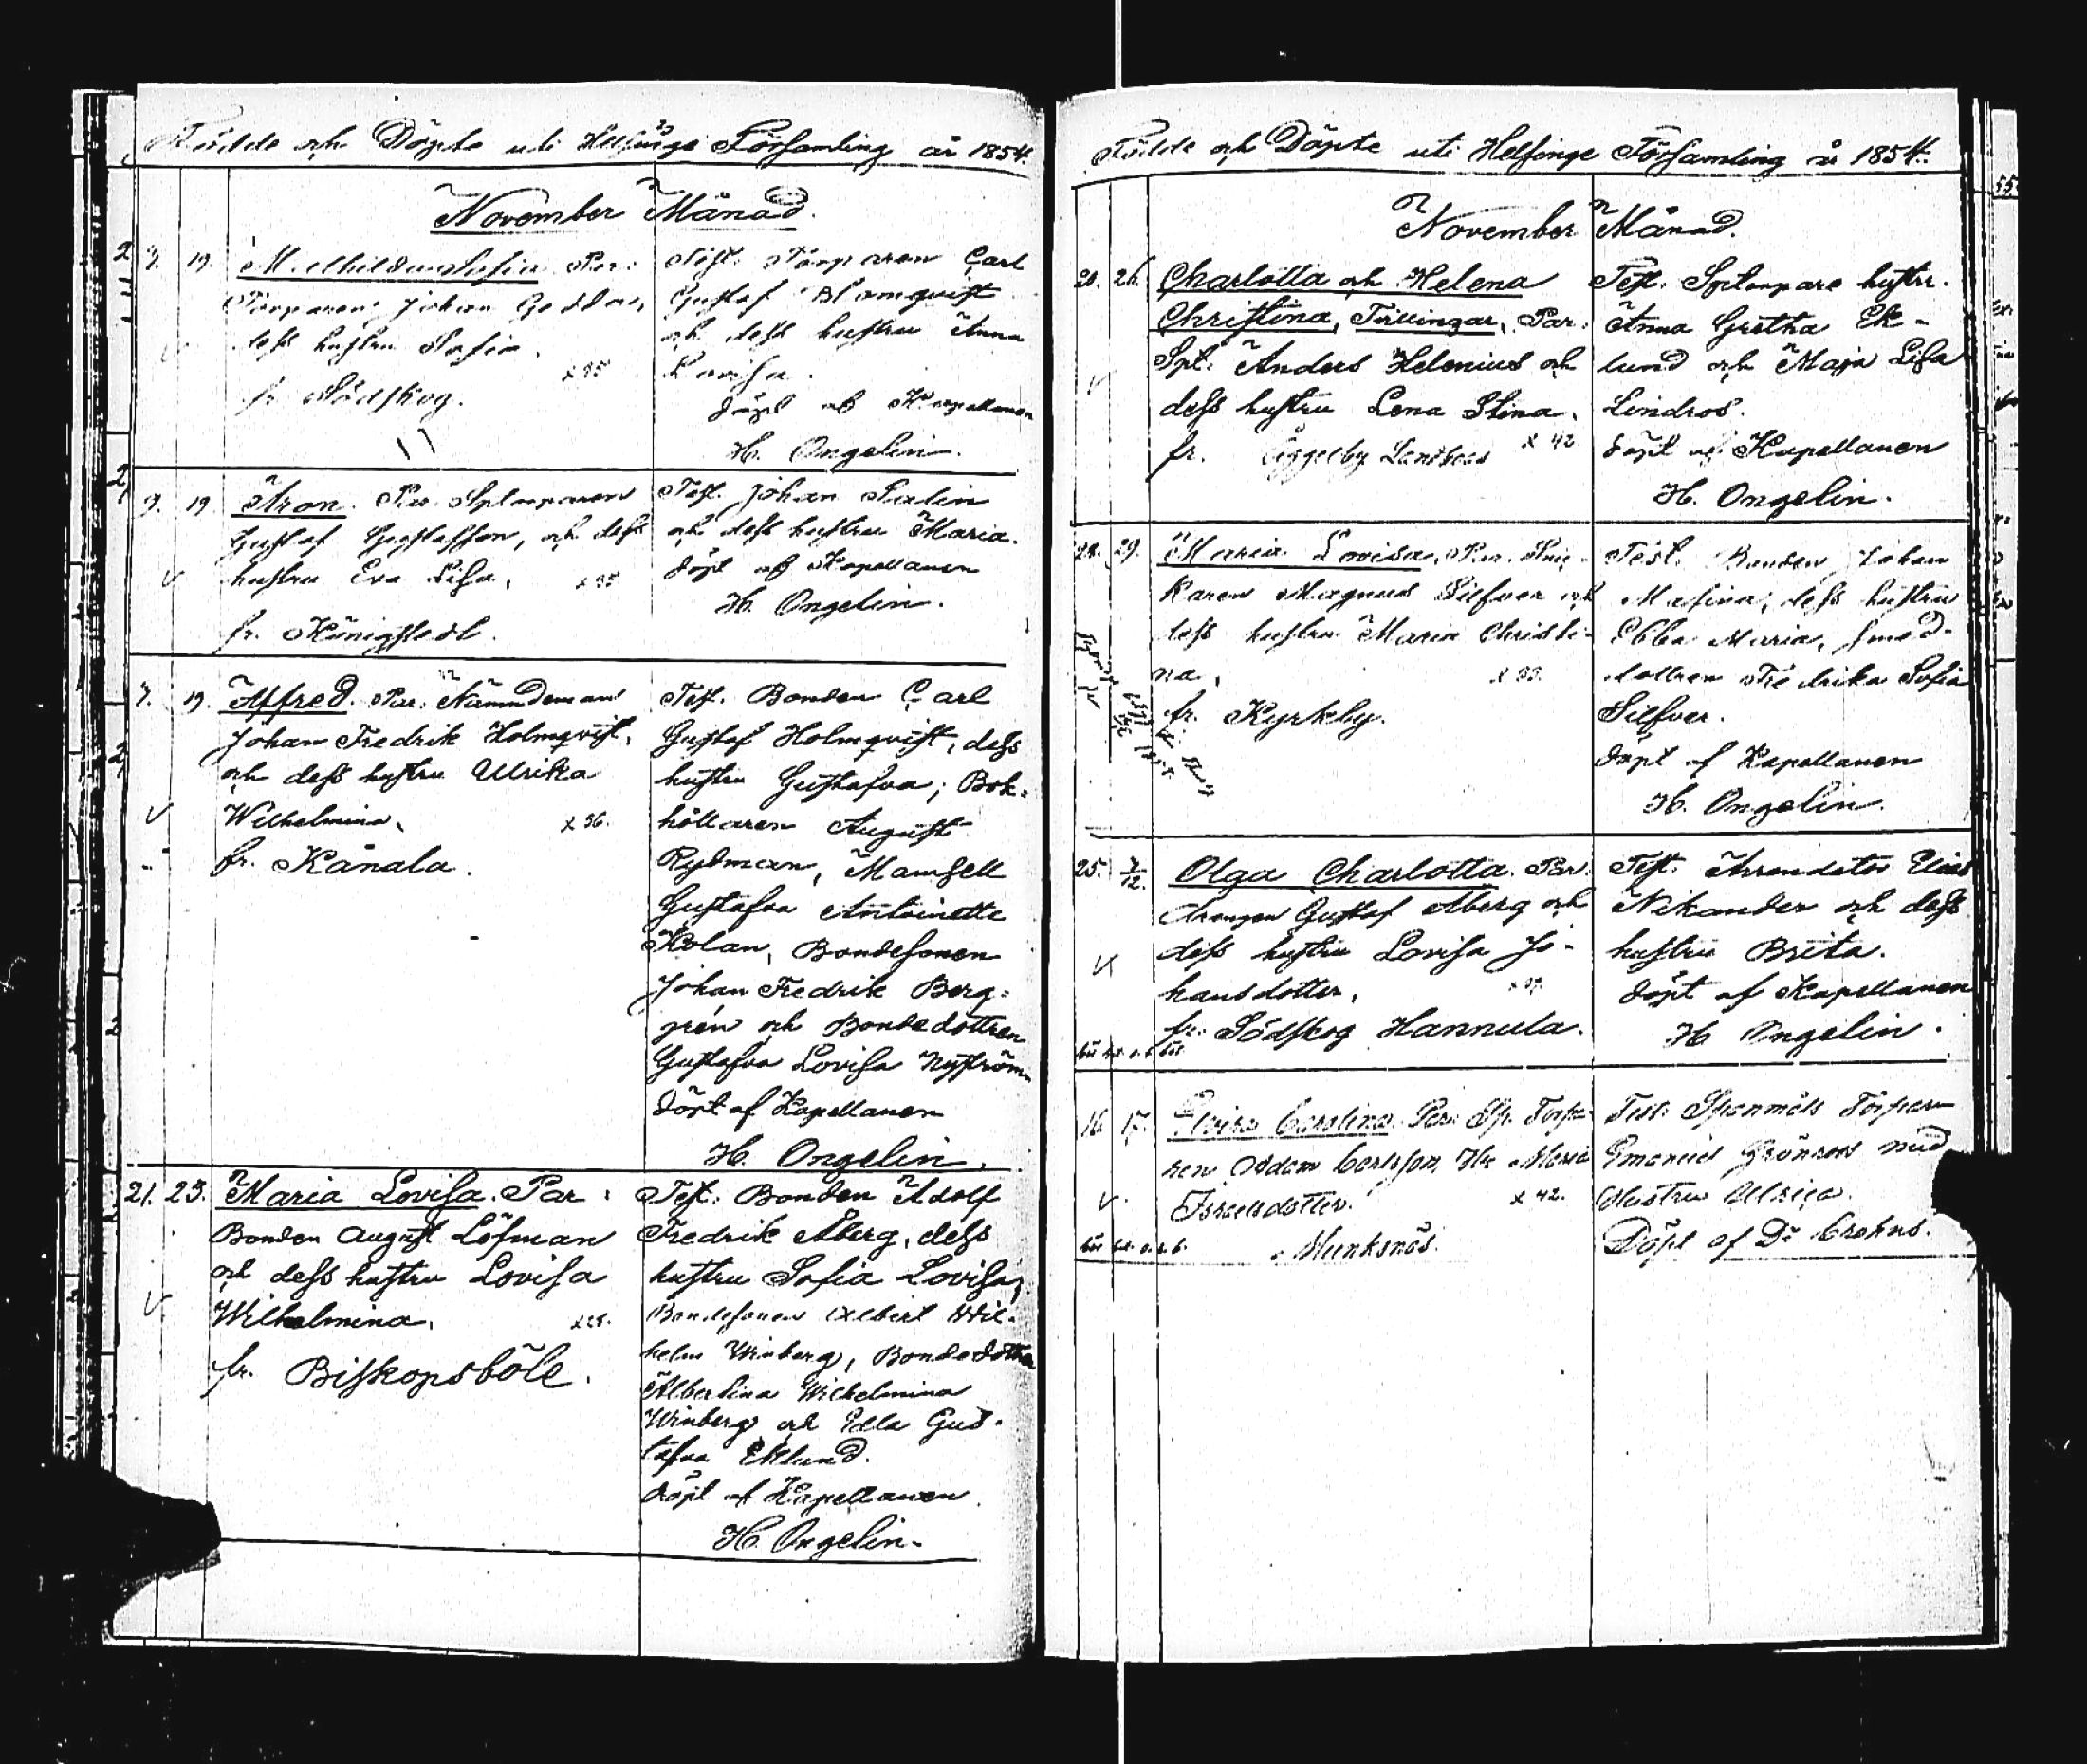 Födde och Döpte uti Helsinge Församling år 1854.
November Månad.
7. 19. Mathilda Sofia. Par:
Torparen Johan
dess hustru Sofia.
x 35
fr. Södskog.
Test. Torparen Carl
Gustaf Blomqvist
och dess hustru Anna
Lovisa.
döpt af Kapellanen
H. Ongelin.
9. 19. Aron. Par. Sptorparen
Gustaf Gustafsson, och dess
hustru Eva Lisa. x 35
fr. Königstedt.
Test. Johan Salin
och dess hustru Maria.
döpt af Kapellanen
H. Ongelin.
7. 19. Alfred. Par. Nämndeman
Johan Fredrik Holmqvist,
och dess hustru Ulrika
Wilhelmina. x 36.
fr. Kånala.
Test. Bonden Carl
Gustaf Holmqvist, dess
hustru Gustafva; Bok-
hållaren August
Rydman, Mamsell
Gustafva Antoinette
Kolan, Bondesonen
Johan Fredrik Berg-
grén och Bondedottren
Gustafva Lovisa Nyström
döpt af Kapellanen
H. Ongelin.
21. 23. Maria Lovisa. Par:
Bonden August Löfman
och dess hustru Lovisa
Wilhelmina.
fr. Biskopsböle.
Test: Bonden Adolf
Fredrik Åberg, dess
hustru Sofia Lovisa,
Bondesonen Albert Wil-
helm Winberg, Bondedottren
Albertina Wilhelmina
Winberg och Edla Gus-
tafva Eklund.
döpt af Kapellanen
H. Ongelin.
Födde och Döpte uti Helsinge Församling år 1854.
November Månad.
20. 26. Charlotta och Helena
Christina, Tvillingar, Par:
Spt. Anders Helenius och
dess hustru Lena Stina.
fr. Åggelby Landbos x 42
Test. Sptorpare hustr.
Anna Gretha Ek-
lund och Maja Lisa
Lindros.
döpt af Kapellanen
H. Ongelin.
29. Maria Lovisa, Par. Snic-
karen Magnus Silfver och
dess hustru Maria Christi-
na.
fr. Kyrkby.
Test. Bonden Johan
Malina, dess hustru
Ebba Maria, Smed-
dottren Fredrika Sofia
Silfver.
döpt af Kapellanen
H. Ongelin.
25. 3/12. Olga Charlotta. Par.
Drengen Gustaf Åberg och
dess hustru Lovisa Jo-
hansdotter.
fr. Södskog Hannula.
Test. Arrendator Elias
Nikander och dess
hustru Brita.
döpt af Kapellanen
H Ongelin.
16. 17. Elvira Carolina. Par: Sp. Torpa-
ren Adam Carlsson, Hu Maria
Israelsdotter. x 42.
Munksnäs.
Test: Spanmåls Torparen
Emanuel Grönroos med
Hustru Ulrica.
Döpt af Dr Crohns.